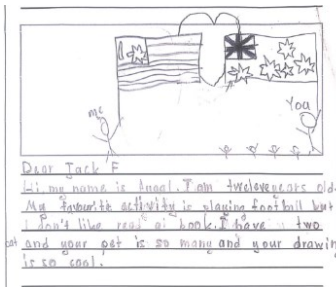 me
You
Dear Jack F
Hi, my name is . I am tweleve years old
My favourite activity is playing football but
I don't like read a book. I have two
cat and your pet is so many and your drawing
is so cool.